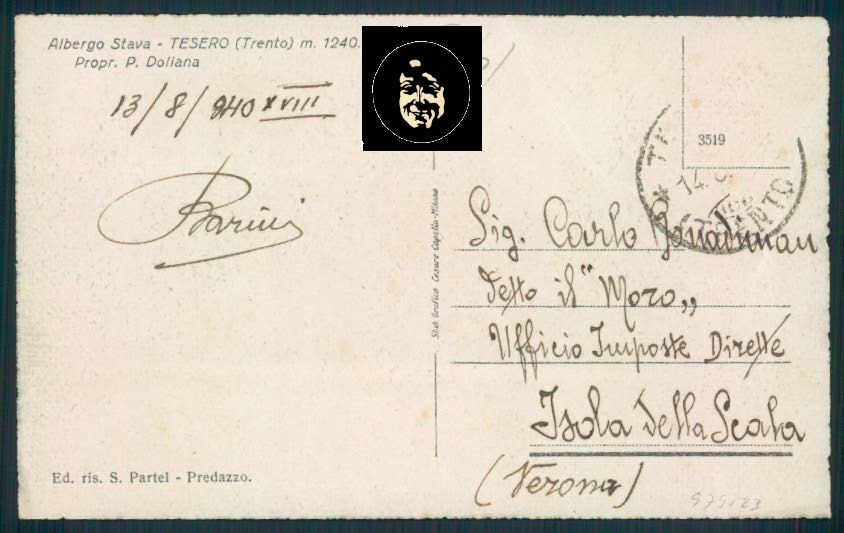 Albergo Stava - TESERO (Trento) m. 1240.
Propr. P. Doliana
13/8/940 XVIII
Barini
Stab. Grafico Cesare Capello-Milano
Ed. ris. S. Partel - Predazzo.
3519
14.
Sig. Carlo
detto il "Moro„
Ufficio Imposte Dirette
Isola della Scala
(Verona)